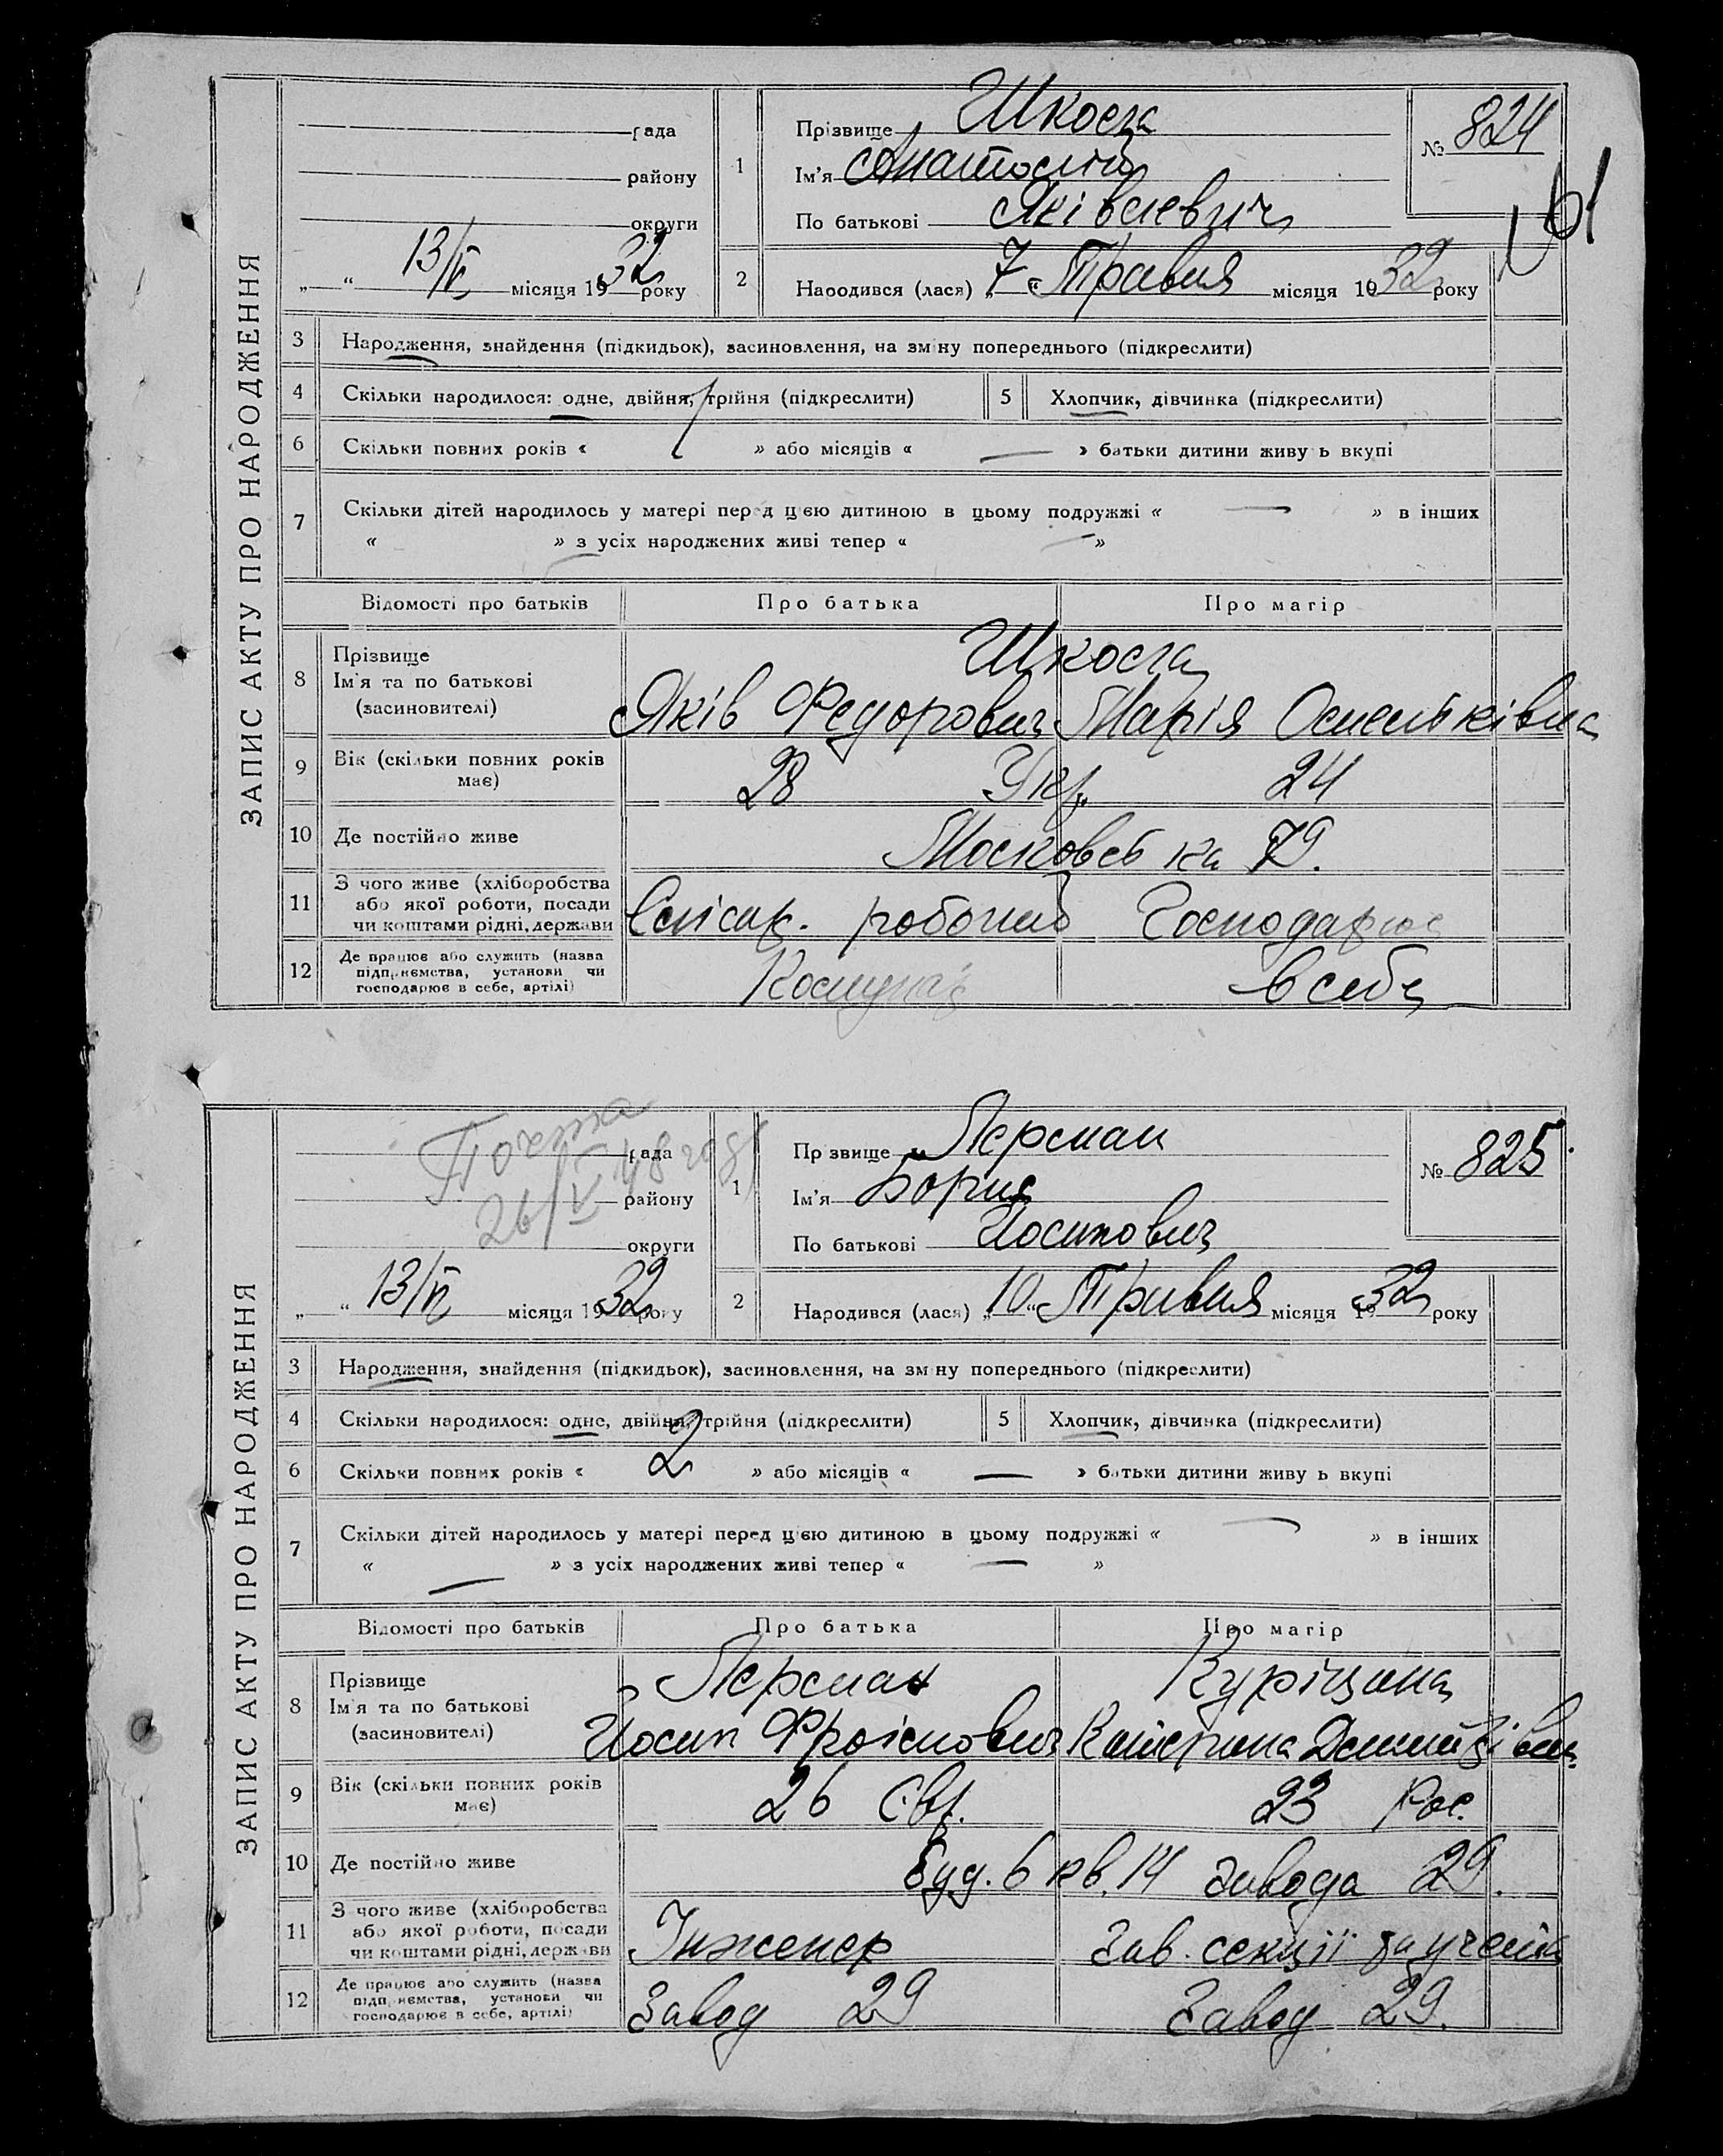 ЗАПИС АКТУ ПРО НАРОДЖЕННЯ
рада
району
округи
„ “ 13/V місяця 1932 року
1
Прізвище Школа
Ім'я Анатолій
По батькові Яківлевич
№ 824
61
2
Народився (лася) „7“ Травня місяця 1932 року
3 Народження, знайдення (підкидьок), засиновлення, на зміну попереднього (підкреслити)
4 Скільки народилося: одне, двійня, трійня (підкреслити) 5 Хлопчик, дівчинка (підкреслити)
6 Скільки повних років « 1 » або місяців « — » батьки дитини живуть вкупі
7 Скільки дітей народилось у матері перед цією дитиною в цьому подружжі « — » в інших
« — » з усіх народжених живі тепер « — »
Відомості про батьків Про батька Про матір
8 Прізвище
Ім'я та по батькові
(засиновителі)
Школа
Яків Федорович Марія
9 Вік (скільки повних років має) 28 Укр. 24
10 Де постійно живе Московська 79.
11 З чого живе (хліборобства
або якої роботи, посади
чи коштами рідні, держави
робочий Господарює
12 Де працює або служить (назва
підприємства, установи чи
господарює в себе, артілі)
в себе
ЗАПИС АКТУ ПРО НАРОДЖЕННЯ
рада
району
округи
26/V 48 году
„ “ 13/V місяця 1932 року
1
Прізвище Лерман
Ім'я Борис
По батькові Йосипович
№ 825
2
Народився (лася) „10“ Травня місяця 1932 року
3 Народження, знайдення (підкидьок), засиновлення, на зміну попереднього (підкреслити)
4 Скільки народилося: одне, двійня, трійня (підкреслити) 5 Хлопчик, дівчинка (підкреслити)
6 Скільки повних років « 2 » або місяців « — » батьки дитини живуть вкупі
7 Скільки дітей народилось у матері перед цією дитиною в цьому подружжі « — » в інших
« — » з усіх народжених живі тепер « — »
Відомості про батьків Про батька Про матір
8 Прізвище
Ім'я та по батькові
(засиновителі)
Лерман Куріцина
Йосип Фроімович Катерина
9 Вік (скільки повних років має) 26 Євр. 23 Рос.
10 Де постійно живе буд. 6 кв. 14 завода 29.
11 З чого живе (хліборобства
або якої роботи, посади
чи коштами рідні, держави
Інженер Зав. секції
12 Де працює або служить (назва
підприємства, установи чи
господарює в себе, артілі)
Завод 29 Завод 29.